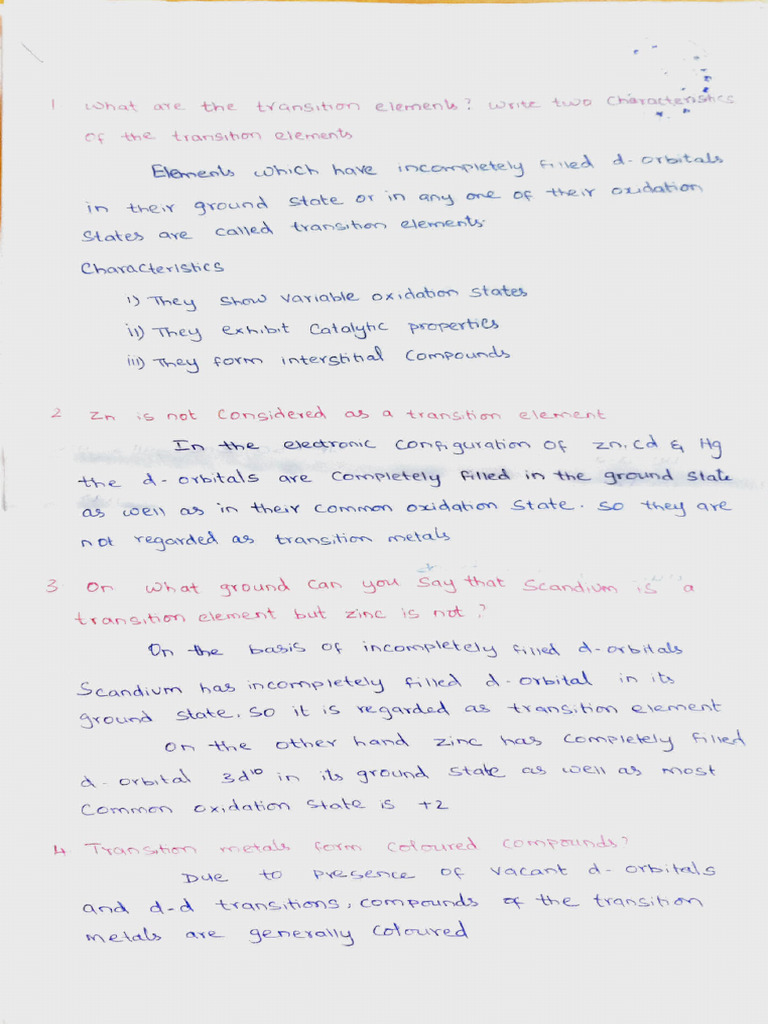 1 What are the transition elements? Write two characteristics
of the transition elements
Elements which have incompletely filled d-orbitals
in their ground state or in any one of their oxidation
states are called transition elements.
Characteristics
i) They show variable oxidation states
ii) They exhibit catalytic properties
iii) They form interstitial compounds
2 Zn is not considered as a transition element
In the electronic configuration of Zn, Cd & Hg
the d-orbitals are completely filled in the ground state
as well as in their common oxidation state. So they are
not regarded as transition metals
3 On what ground can you say that Scandium is a
transition element but zinc is not?
On the basis of incompletely filled d-orbitals
Scandium has incompletely filled d-orbital in its
ground state, so it is regarded as transition element
On the other hand zinc has completely filled
d-orbital 3d¹⁰ in its ground state as well as most
common oxidation state is +2
4 Transition metals form coloured compounds?
Due to presence of vacant d-orbitals
and d-d transitions, compounds of the transition
metals are generally coloured